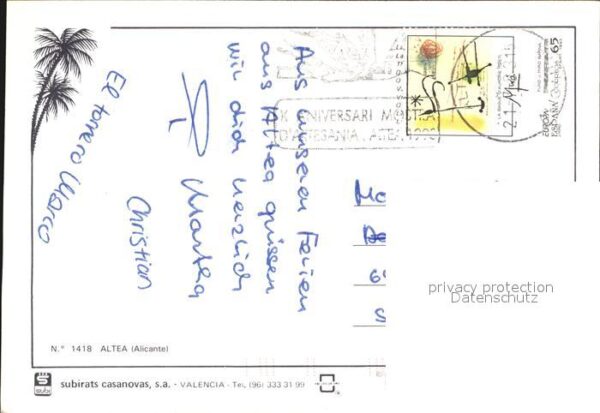 Aus unseren Ferien
aus Altea grüssen
wir dich herzlich
Martha
Christian
El torrero Marco
X ANIVERSARI MOSTRA
D'ARTESANIA. ALTEA 1993
65
ESPAÑA
privacy protection
Datenschutz
N.° 1418 ALTEA (Alicante)
subirats casanovas, s.a. - VALENCIA - Tel. (96) 333 31 99